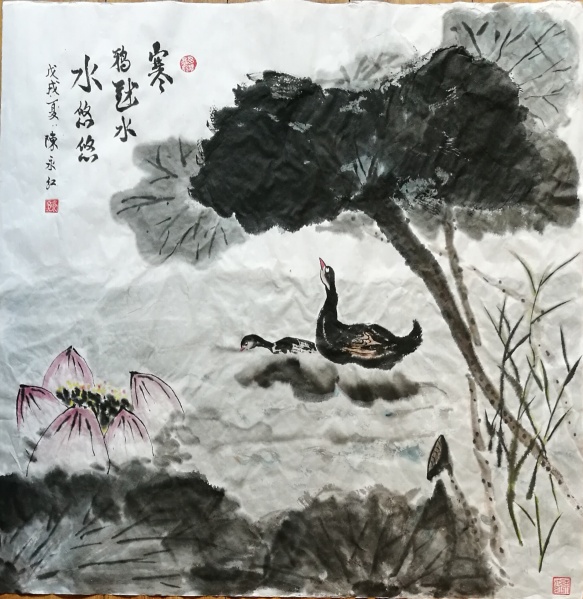 寒
鸦戏水
水悠悠
戊戌夏 陳永红